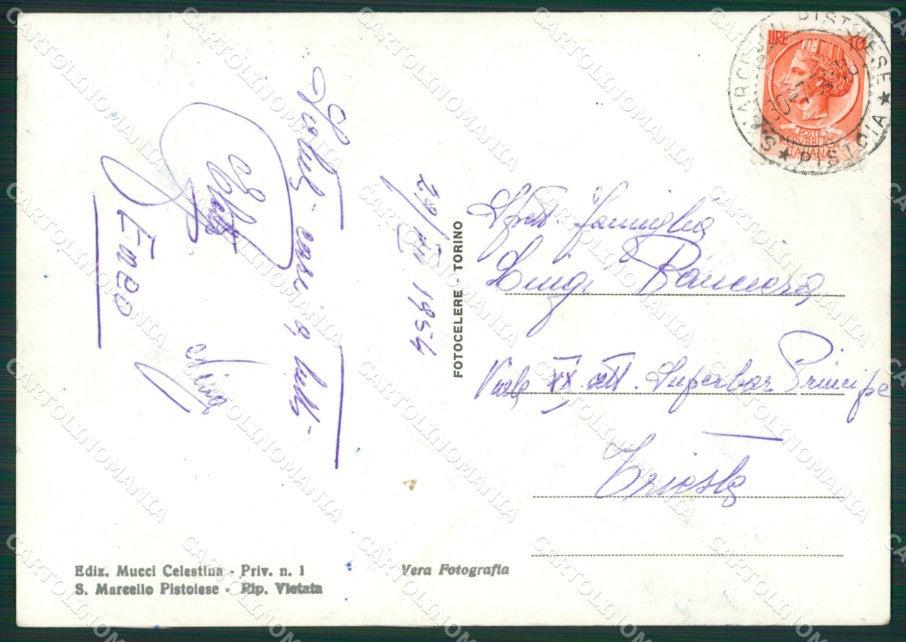 Saluti cari a tutti
Enzo
Nino
29/VIII 1954
FOTOCELERE - TORINO
LIRE 10
S. MARCELLO PISTOIESE
★ PISTOIA ★
POSTE
REPUBBLICA
ITALIANA
famiglia
Luigi
Viale XX Sett. Superbar Principe
Trieste
Ediz. Mucci Celestina - Priv. n. 1
S. Marcello Pistoiese - Rip. Vietata
Vera Fotografia
CARTOLINOMANIA